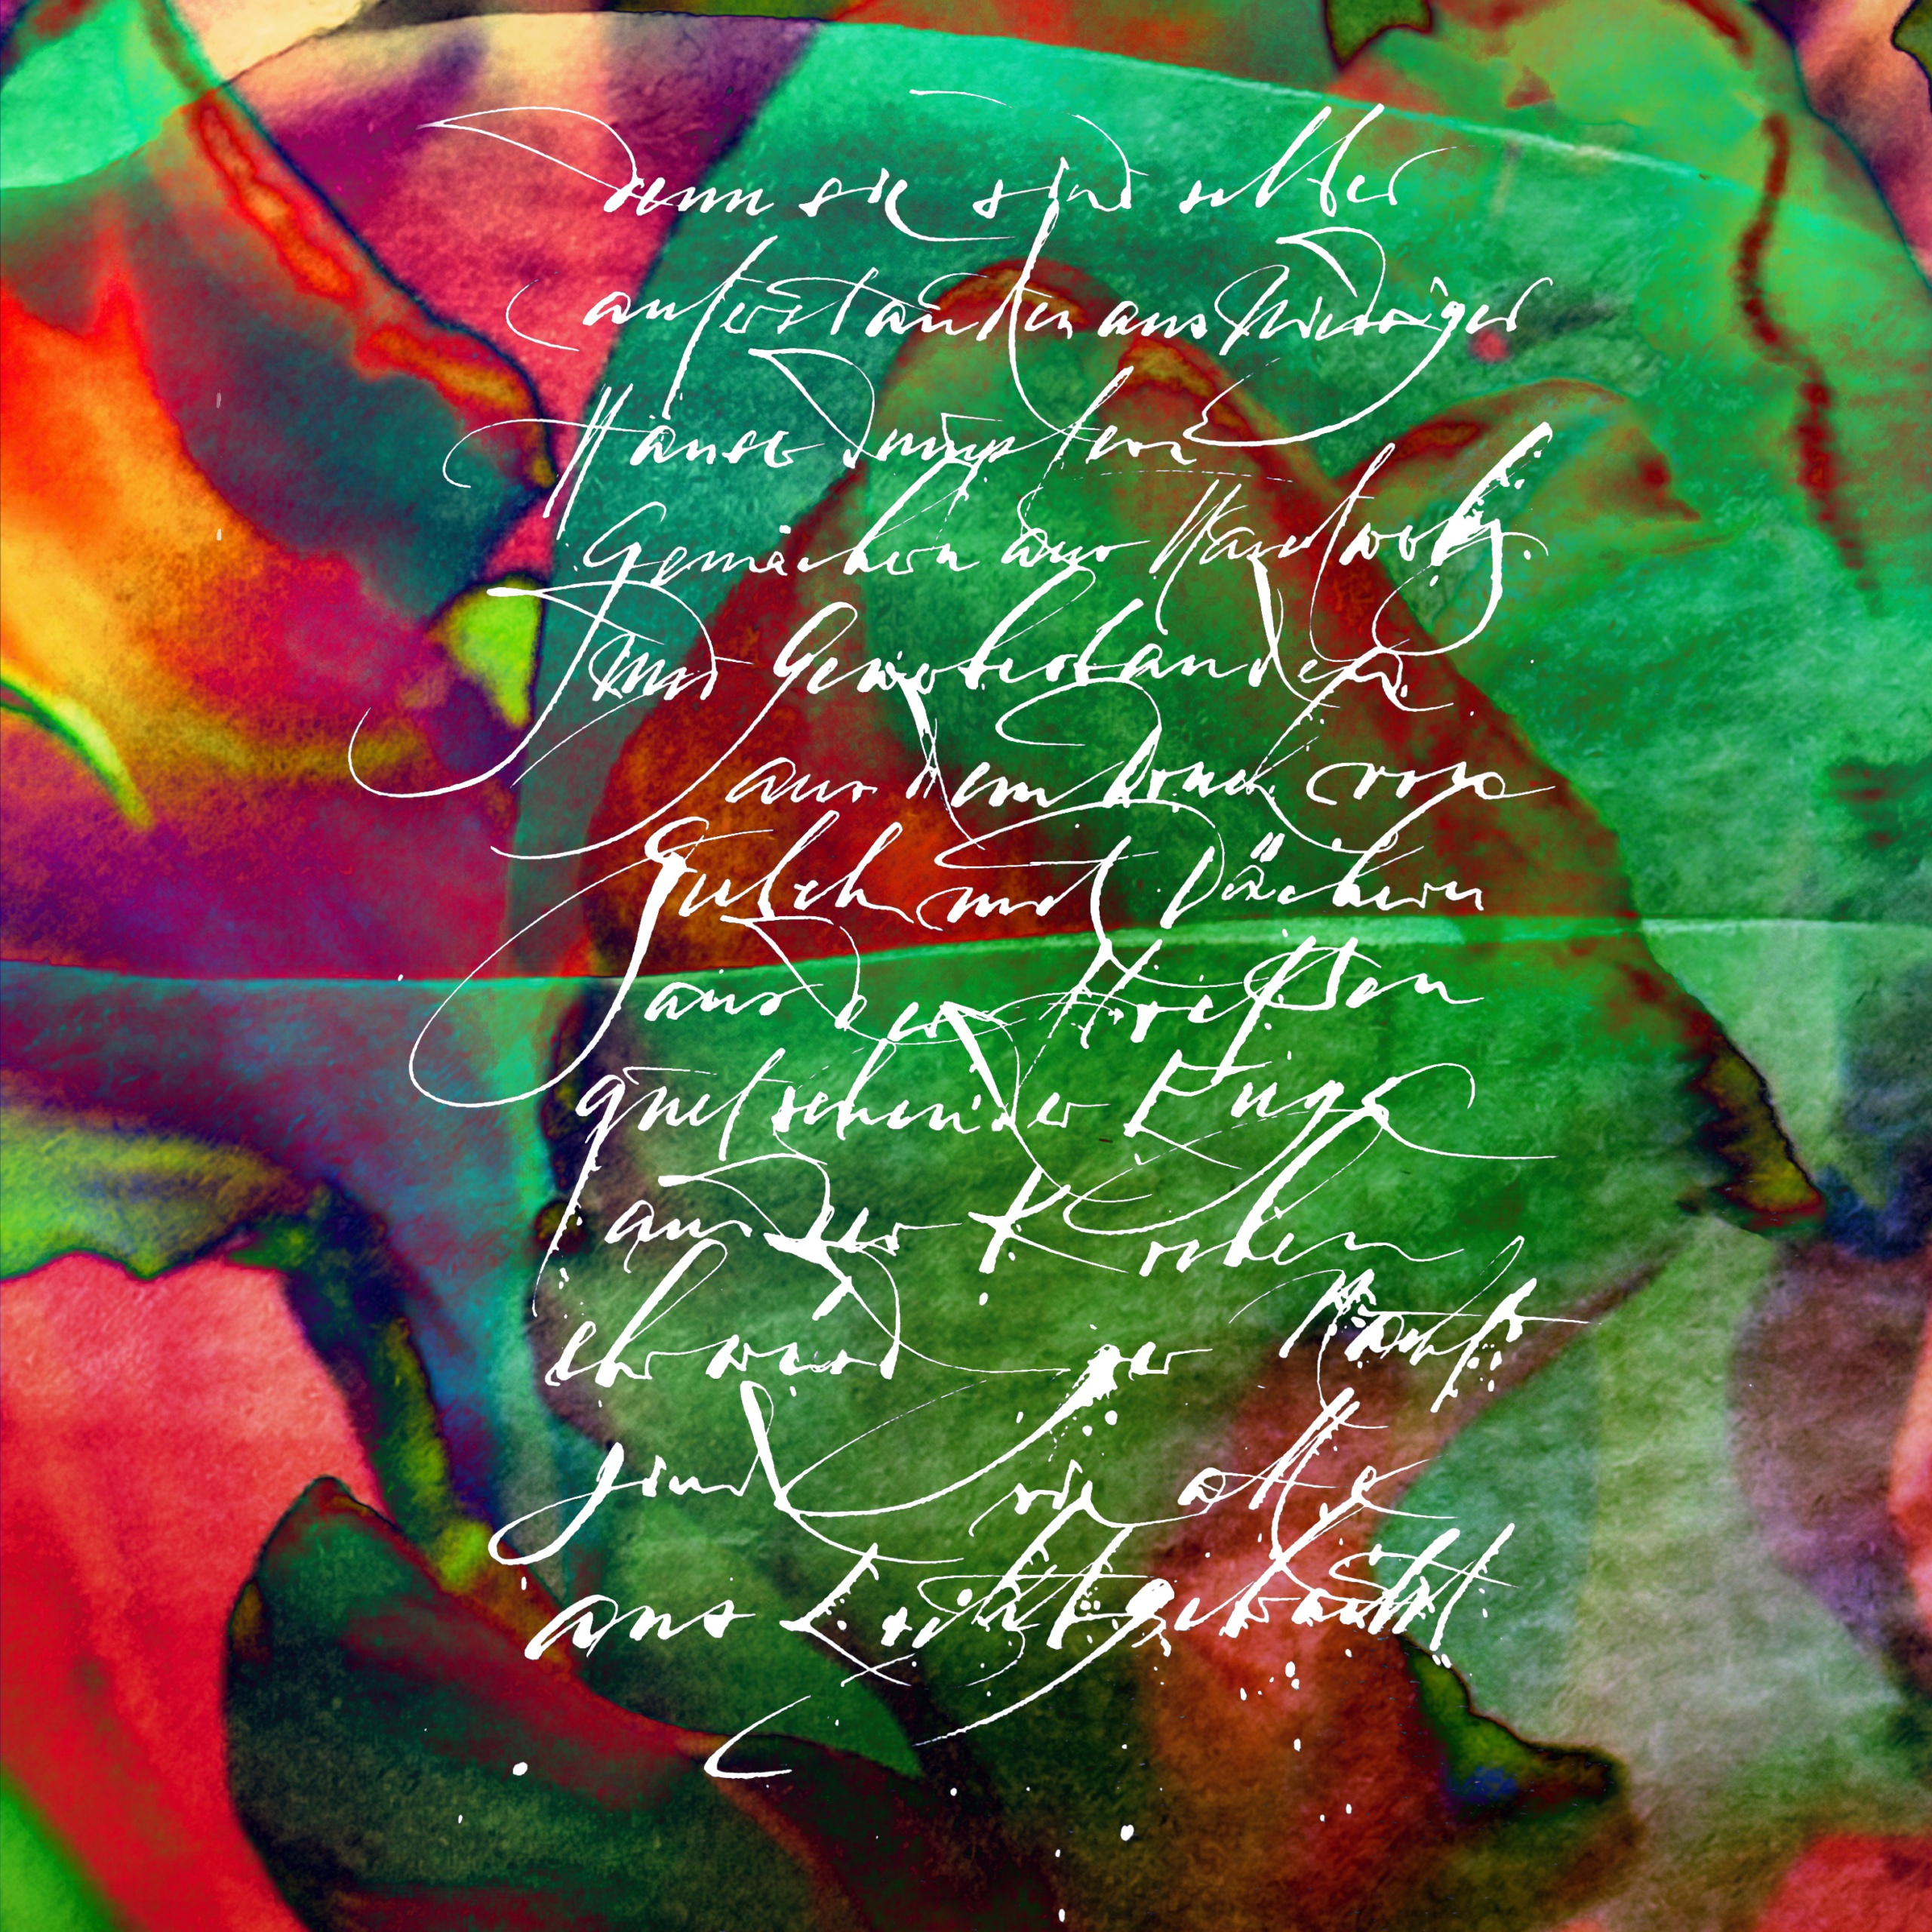 Denn sie sind selber
auferstanden aus niedriger
Häuser dumpfen
Gemächern aus Handwerks
und Gewerbesbanden
aus dem Druck von
Giebeln und Dächern
aus der Straßen
quetschender Enge
aus der Kirchen
ehrwürdiger Nacht
sind sie alle
ans Licht gebracht